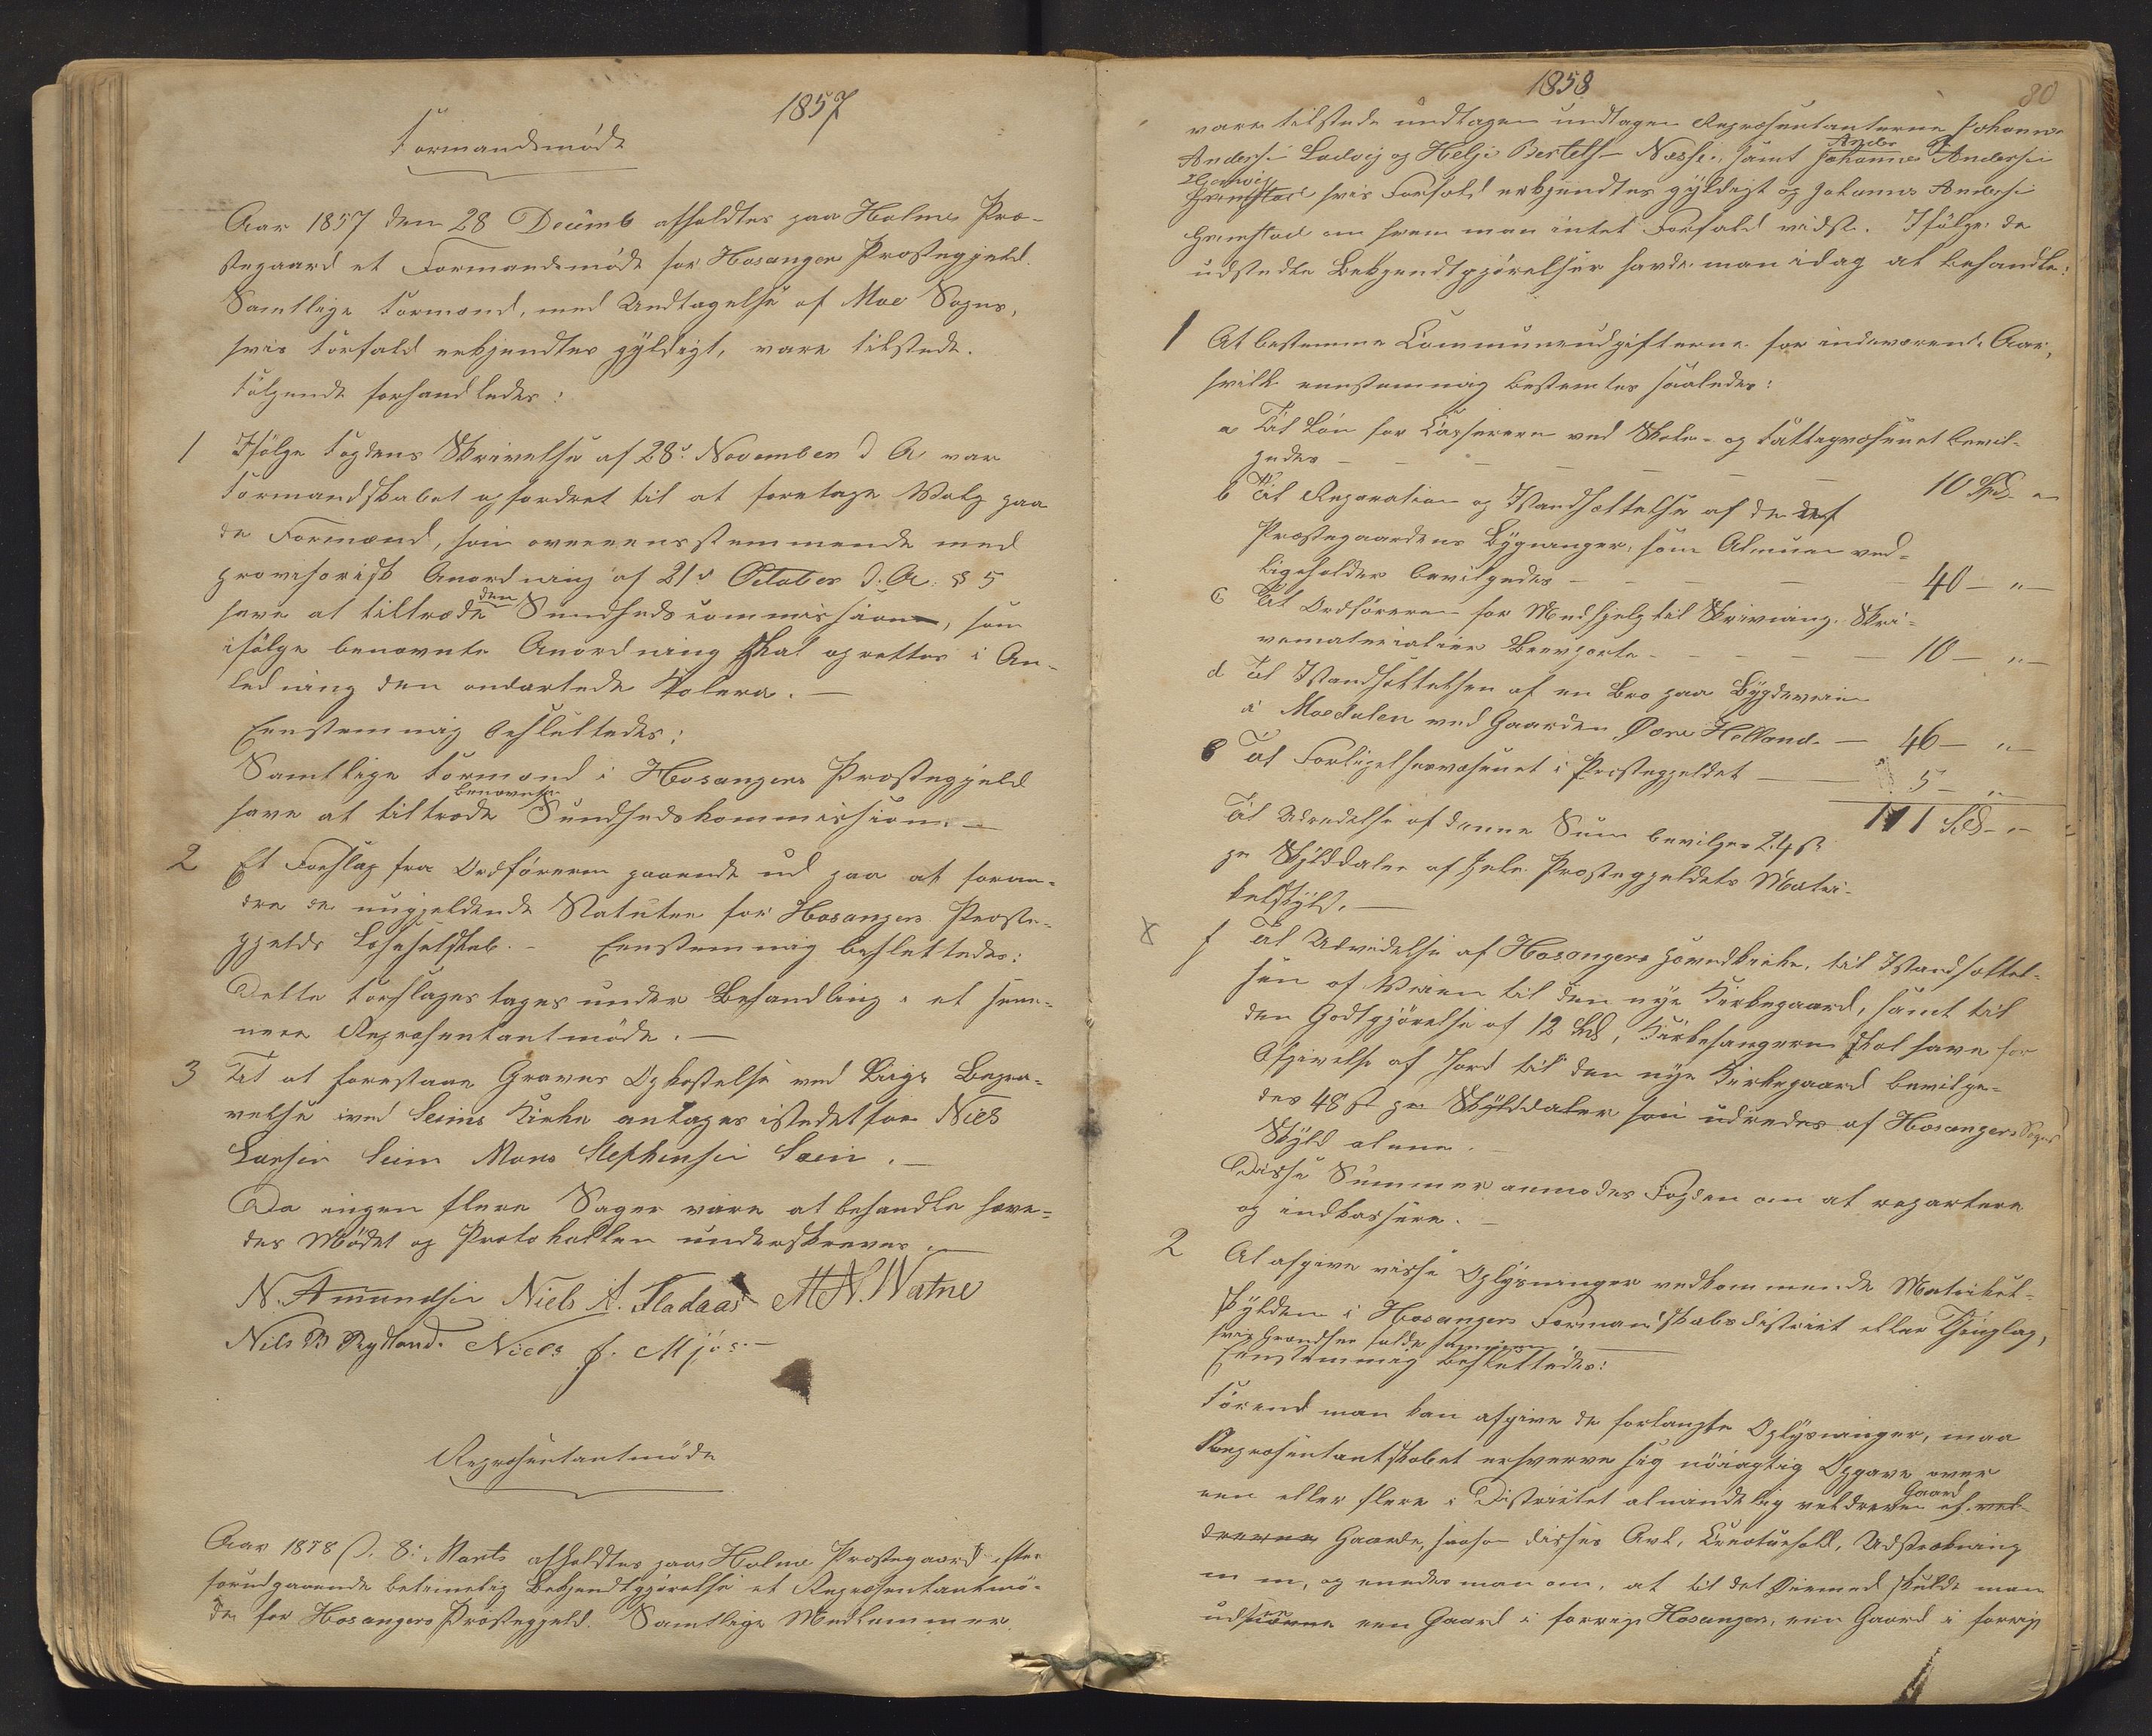 1857
Formandsmöde
Aar 1857 den 28 Decemb afholdtes paa Holme Præ-
stegaard et Formandsmöde for Hosanger Præstegjeld.
Samtlige Formænd, med Undtagelse af Moe Sogns,
hvis Forfald erkjendtes gyldigt, vare tilstede.
Fölgende forhandledes:
1 Ifölge Fogdens Skrivelse af 28de November d. A. var
Formandskabet opfordret til at foretage Valg paa
de Formænd, som overeensstemmende med
provisorisk Anordning af 21de October d. A. § 5
have at tiltræde den Sundhedscommission, som
ifölge benævnte Anordning skal oprettes i An-
ledning den ondartede Kolera. —
Eenstemmig besluttedes:
Samtlige Formænd i Hosangers Præstegjeld
have at tiltræde benævnte Sundhedskommission. —
2 Et Forslag fra Ordföreren gaaende ud paa at foran-
dre de nugjeldende Statuter for Hosangers Præste-
gjelds Læseselskab. — Eenstemmig besluttedes:
Dette Forslages tages under Behandling i et sene-
nere Repræsentantmöde. —
3 Til at forestaae Graves Opkastelse ved Liigs Begra-
velse ved Seims Kirke antages istedetfor Niels
Larsen Seim Mons Stephensen Seim. —
Da ingen flere Sager vare at behandle hæve-
des Mödet og Protokollen underskreves. —
N. Amundsen Niels A. Fladaas M N. Watne
Nils B Rydland. Niels J. Mjös. —
Repræsentantmöde
Aar 1858 d. 8de Marts afholdtes paa Holme Præstegaard efter
forudgaaende betimelig Bekjendtgjörelse et Repræsentantmö-
de for Hosangers Præstegjeld. Samtlige Medlemmer
1858
80
vare tilstede undtagen undtagen Repræsentanterne Johannes
Andersen Ladvig og Helje Bertels Næsse, samt Johannes Andersen
Grimstad hvis Forfald erkjendtes gyldigt og Johannes Andersen
Grimstad om hvem man intet Forfald vidste. Ifölge de
udstedte Bekjendtgjörelser havde man idag at behandle:
1 At bestemme Communeudgifterne for indeværende Aar,
hvilke eenstemmig bestemtes saaledes:
a Til Lön for Casserere ved Skole- og Fattigvæsenet bevil-
gedes — — — — — 10 Spd "
b Til Reparation og Istandsættelse af de af
Præstegaardens Bygninger, som Almuen ved-
ligeholder bevilgedes — — — 40 — " —
c Til Ordföreren for Medhjelp til Skrivning, Skri-
vematerialier Brevporto — — — 10 — " —
d Til Istandsættelsen af en Bro paa Bygdeveien
i Moedalen ved Gaarden Övre Helland. — 46 — " —
e Til Forligelsesvæsenet i Præstegjeldet — — 5 — " —
111 Spd — "
Til Udredelse af denne Sum bevilges 24 ß
pr Skylddaler af hele Præstegjeldets Matri-
kelskyld. —
x f Til Udvidelse af Hosangers Hovedkirke, til Istandsættel-
sen af Veien til den nye Kirkegaard, samt til
den Godtgjörelse af 12 Spd, Kirkesangeren skal have for
Afgivelse af Jord til den nye Kirkegaard bevilge-
des 48 ß pr Skylddaler som udredes af Hosangers Sogns
Skyld alene. —
Disse Summer anmodes Fogden om at repartere
og indkassere. —
2 At afgive visse Oplysninger vedkommende Matrikel-
skylden i Hosangers Formandskabsdistrict eller Thinglag,
hvis Grændser falde sammen. —
Eenstemmig besluttedes:
Förend man kan afgive de forlangte Oplysninger, maa
Repræsentantskabet erhverve sig nöiagtig Opgave over
een eller flere i Districtet almindelig veldreven Gaard ef. vel-
drevne Gaarde, saasom disses Avl, Kreaturhold, Udstrækning
m m, og enedes man om, at til det Öiemed skulde man
udsee een Gaard i forrige Hosanger, een Gaard i forrige